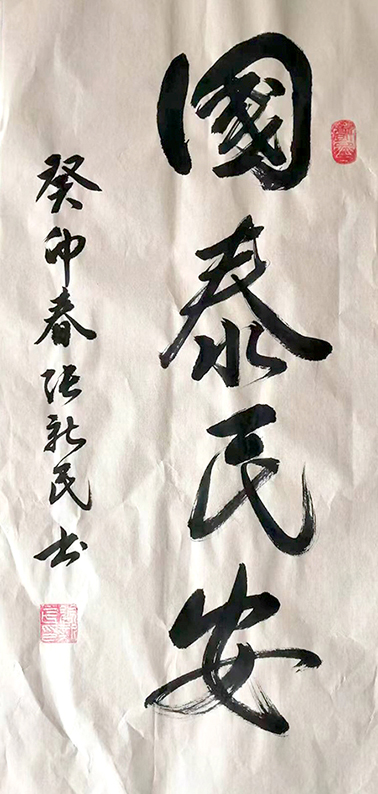 國泰民安
癸卯春张新民书